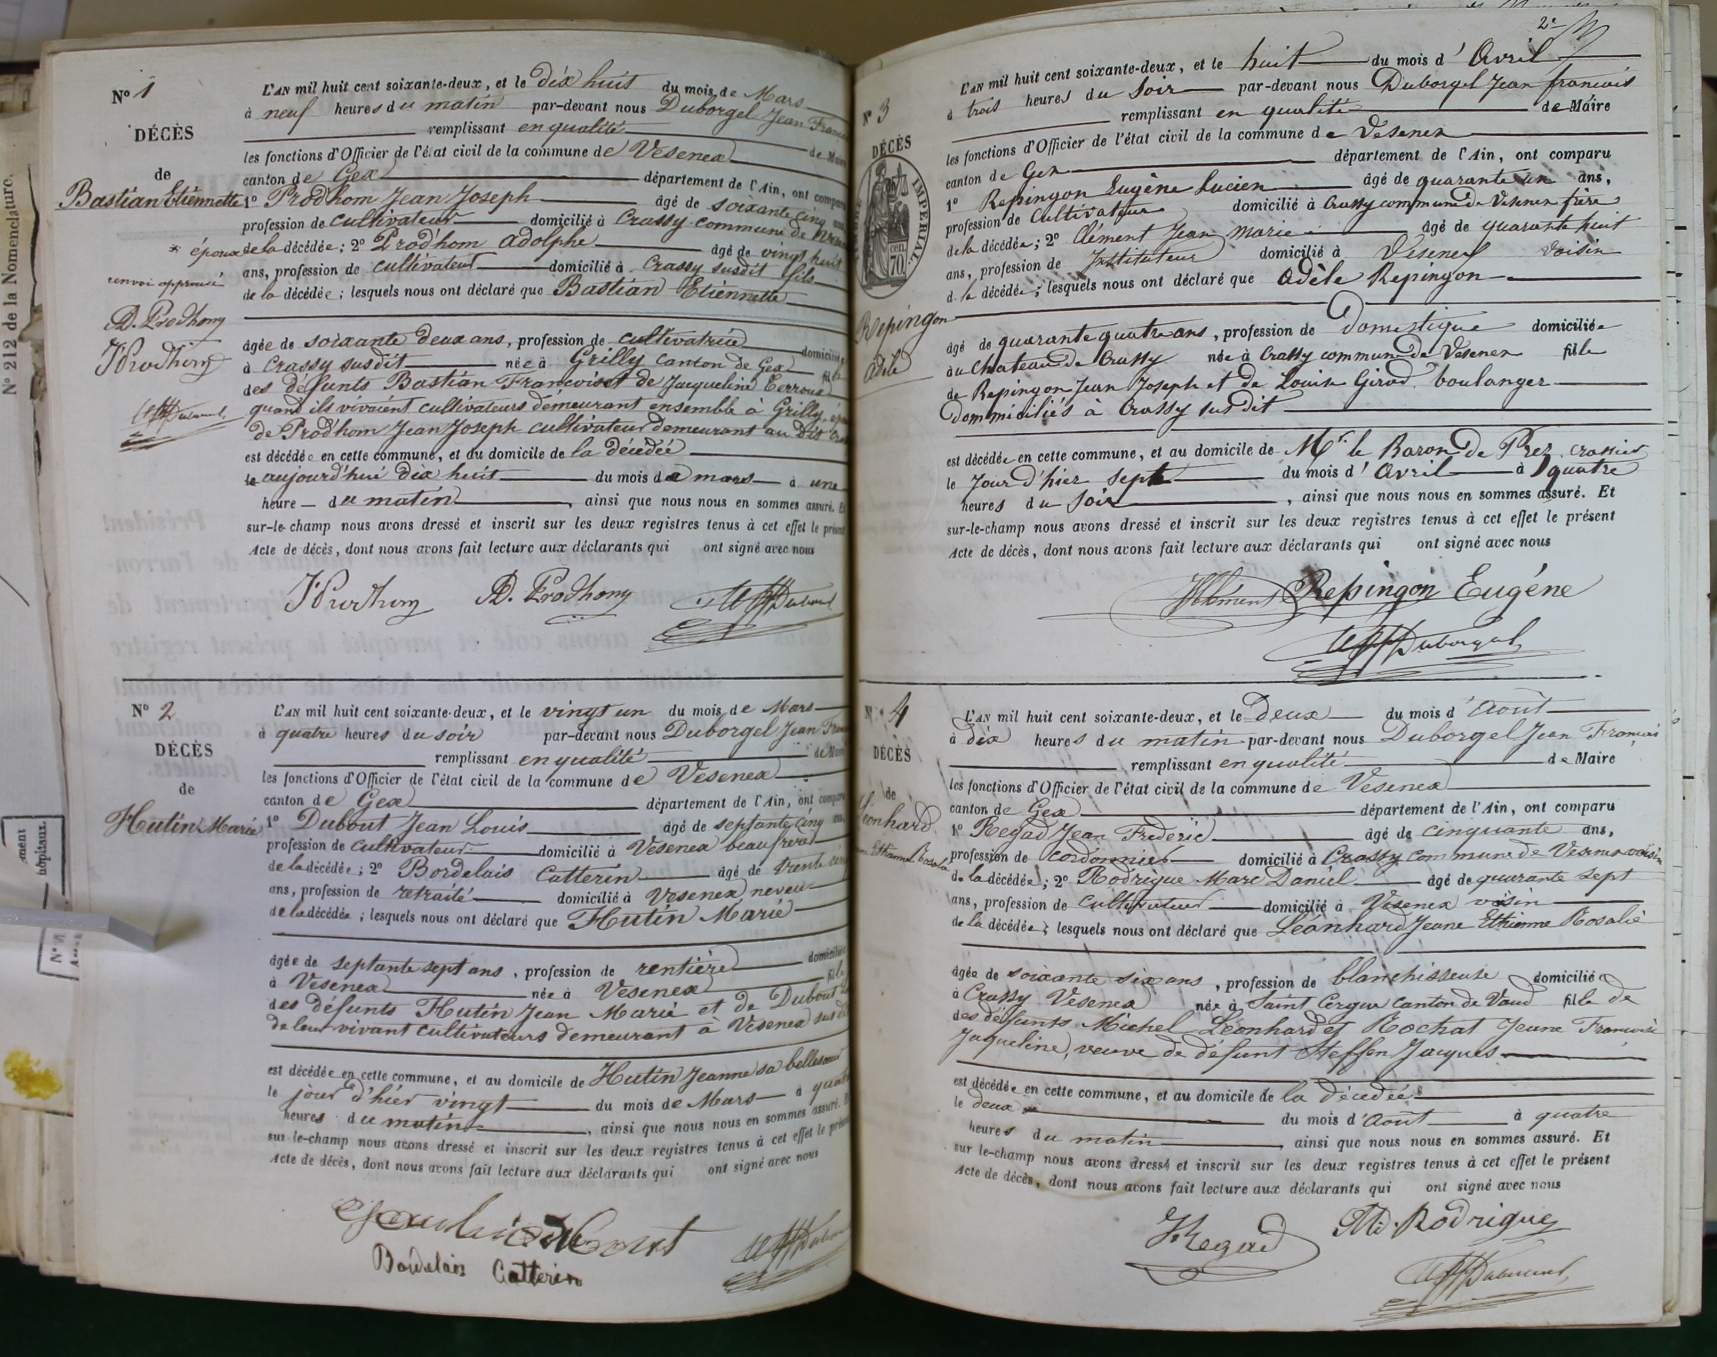 No 1
DÉCÈS
de
Bastian Etiennette
* épouse
renvoi approuvé
A. Prodhom
J Prodhom
L'AN mil huit cent soixante-deux, et le dix huit du mois de Mars
à neuf heures du matin par-devant nous Duborgel Jean
remplissant en qualité de Maire
les fonctions d'Officier de l'état civil de la commune de Vesenex
canton de Gex département de l'Ain, ont comparu
1° Prodhom Jean Joseph âgé de soixante cinq ans,
profession de cultivateur domicilié à Crassy commune de
de la décédée; 2° Prod'hom Adolphe âgé de vingt huit
ans, profession de cultivateur domicilié à Crassy susdit fils
de la décédée; lesquels nous ont déclaré que Bastian Etiennette
âgée de soixante deux ans, profession de cultivatrice domiciliée
à Crassy susdit née à Grilly canton de Gex fille
des défunts Bastian François et de Jacqueline
quand ils vivaient cultivateurs demeurant ensemble à Grilly
de Prod'hom Jean Joseph cultivateur demeurant au dit
est décédée en cette commune, et au domicile de la décédée
le aujourd'hui dix huit du mois de mars à une
heure du matin, ainsi que nous nous en sommes assuré. Et
sur-le-champ nous avons dressé et inscrit sur les deux registres tenus à cet effet le présent
Acte de décès, dont nous avons fait lecture aux déclarants qui ont signé avec nous
J Prodhom A. Prodhom Duborgel
No 2
DÉCÈS
de
Hutin Marie
L'AN mil huit cent soixante-deux, et le vingt un du mois de Mars
à quatre heures du soir par-devant nous Duborgel Jean
remplissant en qualité de Maire
les fonctions d'Officier de l'état civil de la commune de Vesenex
canton de Gex département de l'Ain, ont comparu
1° Dubout Jean Louis âgé de septante cinq ans,
profession de cultivateur domicilié à Vesenex beau frère
de la décédée; 2° Bordelais Catterin âgé de trente cinq
ans, profession de retraité domicilié à Vesenex neveu
de la décédée; lesquels nous ont déclaré que Hutin Marie
âgée de septante sept ans, profession de rentière domiciliée
à Vesenex née à Vesenex fille
des défunts Hutin Jean Marie et de Dubout
de leur vivant cultivateurs demeurant à Vesenex susdit
est décédée en cette commune, et au domicile de Hutin Jeanne sa belle soeur
le jour d'hier vingt du mois de Mars à quatre
heures du matin, ainsi que nous nous en sommes assuré. Et
sur-le-champ nous avons dressé et inscrit sur les deux registres tenus à cet effet le présent
Acte de décès, dont nous avons fait lecture aux déclarants qui ont signé avec nous
Bordelais Catterin
2e
No 3
DÉCÈS
IMPÉRIAL
70
Repingon
Adèle
L'AN mil huit cent soixante-deux, et le huit du mois d'Avril
à trois heures du soir par-devant nous Duborgel Jean francois
remplissant en qualité de Maire
les fonctions d'Officier de l'état civil de la commune de Vesenex
canton de Gex département de l'Ain, ont comparu
1° Repingon Eugène Lucien âgé de quarante un ans,
profession de cultivateur domicilié à Crassy commune de Vesenex frère
de la décédée; 2° Clément Jean Marie âgé de quarante huit
ans, profession de Instituteur domicilié à Vesenex voisin
de la décédée; lesquels nous ont déclaré que Adèle Repingon
âgé de quarante quatre ans, profession de Domestique domiciliée
au Chateau de Crassy née à Crassy commune de Vesenex fille
de Repingon Jean Joseph et de Louise Girod boulanger
dommiciliés à Crassy susdit
est décédée en cette commune, et au domicile de Mr le Baron de Prez Crassier
le jour d'hier sept du mois d'Avril à quatre
heures du soir, ainsi que nous nous en sommes assuré. Et
sur-le-champ nous avons dressé et inscrit sur les deux registres tenus à cet effet le présent
Acte de décès, dont nous avons fait lecture aux déclarants qui ont signé avec nous
Clément Repingon Eugène
Duborgel
No 4
DÉCÈS
de
Léonhard
Jeanne Ethienne Rosalie
L'AN mil huit cent soixante-deux, et le Deux du mois d'Août
à dix heures du matin par-devant nous Duborgel Jean François
remplissant en qualité de Maire
les fonctions d'Officier de l'état civil de la commune de Vesenex
canton de Gex département de l'Ain, ont comparu
1° Regad Jean Frederic âgé de cinquante ans,
profession de cordonnier domicilié à Crassy commune de Vesenex voisin
de la décédée; 2° Rodrigue Marc Daniel âgé de quarante sept
ans, profession de cultivateur domicilié à Vesenex voisin
de la décédée; lesquels nous ont déclaré que Léonhard Jeane Ethienne Rosalie
âgée de soixante six ans, profession de blanchisseuse domiciliée
à Crassy Vesenex née à Saint Cergue canton de Vaud fille de
des défunts Michel Léonhard et Rochat Jeane Francoise
Jaqueline, veuve de défunt Steffen Jacques
est décédée en cette commune, et au domicile de la décedée
le deux du mois d'août à quatre
heures du matin, ainsi que nous nous en sommes assuré. Et
sur le-champ nous avons dressé et inscrit sur les deux registres tenus à cet effet le présent
Acte de décès, dont nous avons fait lecture aux déclarants qui ont signé avec nous
J Regad Md. Rodrigue
Duborgel
N° 212 de la Nomenclature.
hôpitaux.